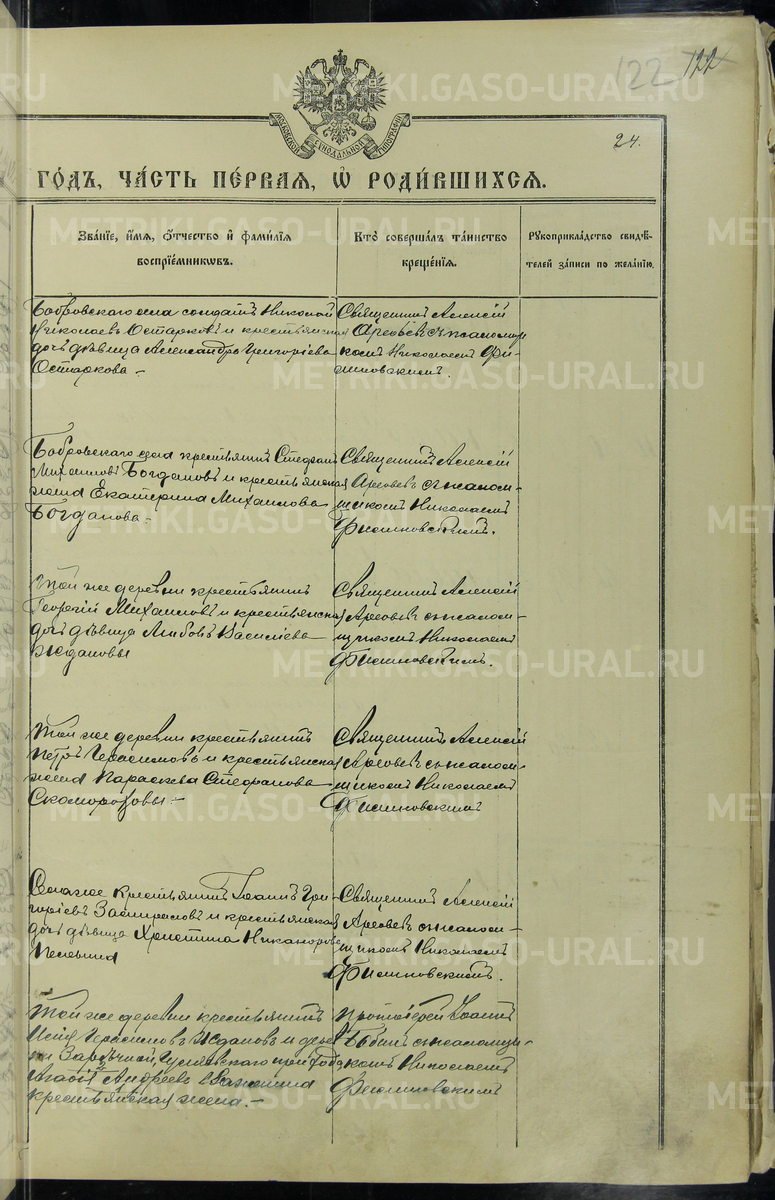 122 122
МОСКОВСКОЙ СѴНОДАЛЬНОЙ ТИПОГРАФІИ
24.
ГО́ДЪ, ЧА́СТЬ ПЕ́РВАЯ, Ѽ РОДИ́ВШИХСЯ.
Зва́нїе, и́мѧ, о́тчество и҆ фами́лїѧ
воспрїе́мниковъ.
Кто̀ соверша́лъ та́инство
креще́нїѧ.
Рꙋкоприкла́дство свидѣ́-
телей за́писи по жела́нїю.
Бобровскаго села солдатъ Николай
Николаевъ Остарковъ и крестьянская
дочь дѣвица Александра Григоріева
Остаркова –
Священникъ Алексій
Арефьевъ съ псаломщи
комъ Николаемъ Фи-
линовскимъ.
Бобровскаго села крестьянинъ Стефанъ
Михаиловъ Богдановъ и крестьянская
жена Екатерина Михаилова
Богданова –
Священникъ Алексій
Арефьевъ съ псалом-
щикомъ Николаемъ
Филиновскимъ.
Той же деревни крестьянинъ
Георгій Михаиловъ и крестьянская
дочь дѣвица Любовь Василіева
Ждановы
Священникъ Алексій
Арефьевъ съ псалом-
щикомъ Николаемъ
Филиновскимъ.
Той же деревни крестьянинъ
Петръ Герасимовъ и крестьянская
жена Параскева Стефанова
Скомороховы –
Священникъ Алексій
Арефьевъ съ псалом-
щикомъ Николаемъ
Филиновскимъ
Села же крестьянинъ Іоаннъ Гри-
горіевъ и крестьянская
дочь дѣвица Христина Никанорова
Священникъ Алексій
Арефьевъ съ псалом-
щикомъ Николаемъ
Филиновскимъ.
Той же деревни крестьянинъ
Герасимовъ Ждановъ и дерев
ни Зарѣчной, прихода
Андреева
крестьянская жена. –
Протоіерей Іоаннъ
съ псаломщи-
комъ Николаемъ
Филиновскимъ
METRIKI.GASO-URAL.RU